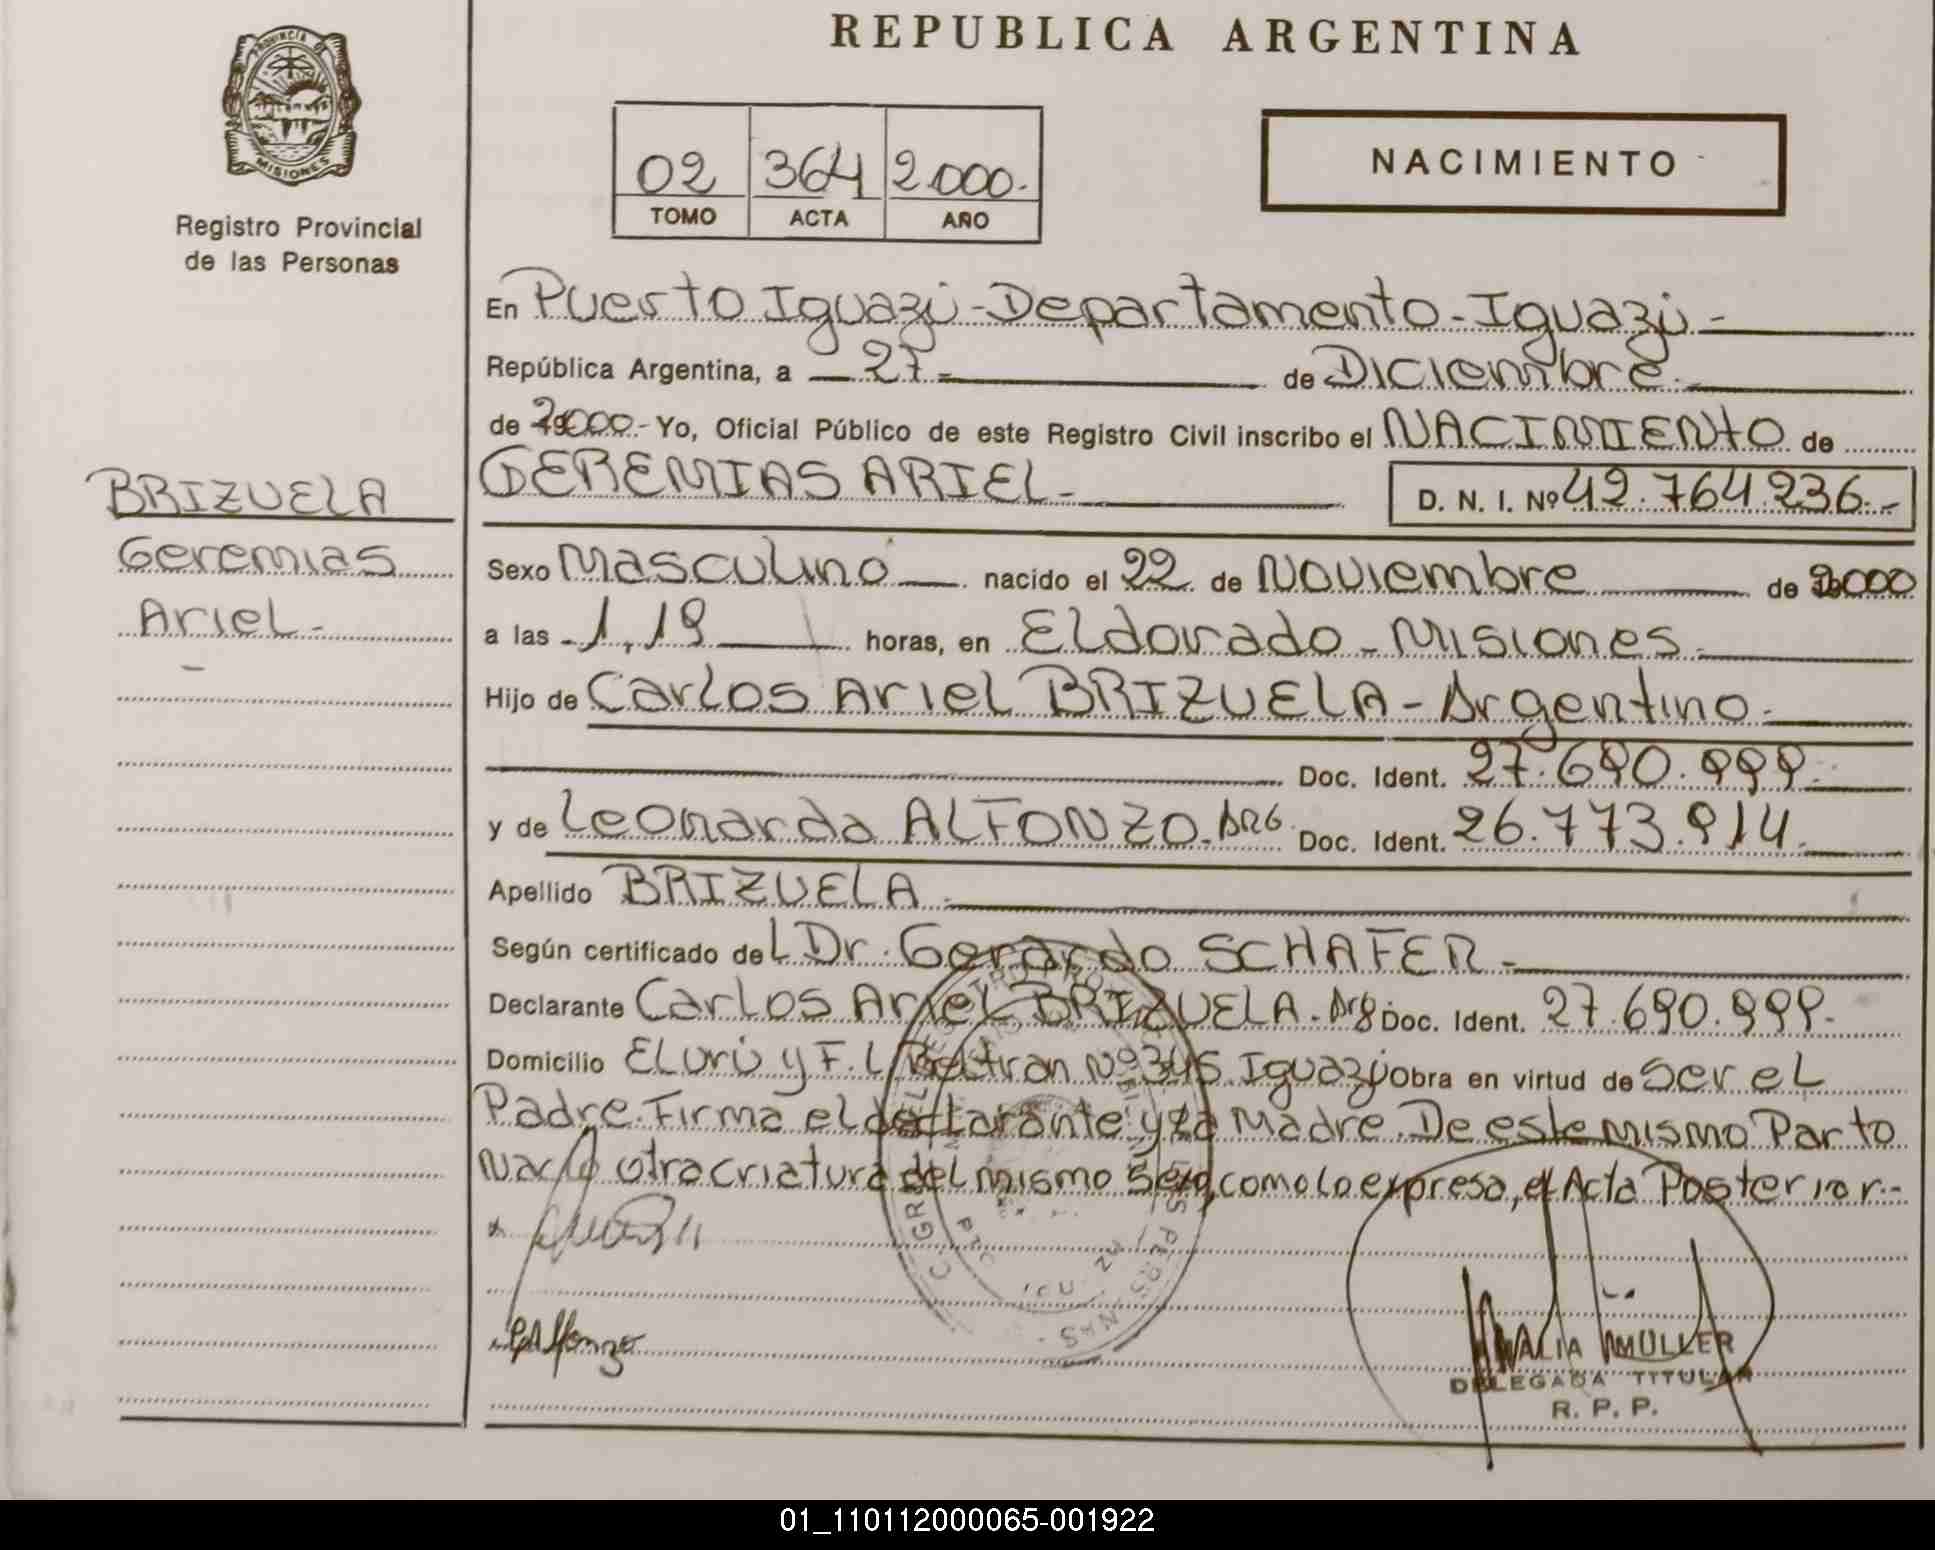 REPUBLICA ARGENTINA
PROVINCIA D MISIONES
Registro Provincial
de las Personas
02 364 2.000.-
TOMO ACTA AÑO
NACIMIENTO
BRIZUELA
Geremias
Ariel.-
En Puerto Iguazú - Departamento - Iguazú -
República Argentina, a 27 - de Diciembre.-
de 2.000.- Yo, Oficial Público de este Registro Civil inscribo el NACIMIENTO de
GEREMIAS ARIEL.- D. N. I. Nº 42.764.236.-
Sexo Masculino nacido el 22 de Noviembre de 2000
a las - 1,19 horas, en Eldorado - Misiones.-
Hijo de Carlos Ariel BRIZUELA - Argentino.-
Doc. Ident. 27.690.999.-
y de Leonarda ALFONZO. ARG. Doc. Ident. 26.773.914.-
Apellido BRIZUELA.-
Según certificado del Dr. Gerardo SCHAFER.-
Declarante Carlos Ariel BRIZUELA. Arg Doc. Ident. 27.690.999.-
Domicilio El Urú y F. L. Beltran Nº 345. Iguazú obra en virtud de ser el
Padre. Firma el declarante y la Madre. De este mismo Parto
Nació otra criatura del mismo Sexo, como lo expresa, el Acta Posterior.-
Alfonzo
AMALIA MULLER
DELEGADA TITULAR
R. P. P.
01_110112000065-001922